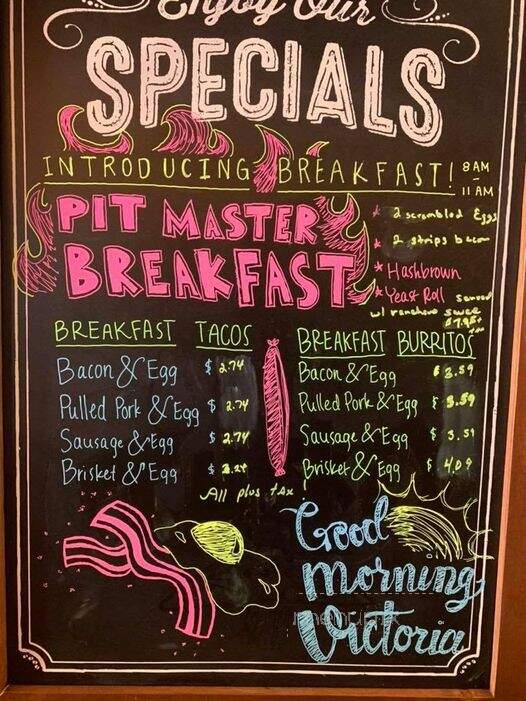 Enjoy Our
SPECIALS
INTRODUCING BREAKFAST! 8AM - 11AM
PIT MASTER
BREAKFAST
* 2 scrambled Eggs
* 2 strips bacon
* Hashbrown
* Yeast Roll served
w/ ranchero sauce
BREAKFAST TACOS
Bacon & Egg $ 2.74
Pulled Pork & Egg $ 2.74
Sausage & Egg $ 2.74
Brisket & Egg $
BREAKFAST BURRITOS
Bacon & Egg $ 3.59
Pulled Pork & Egg $ 3.59
Sausage & Egg $ 3.59
Brisket & Egg $ 4.09
All plus tax
Good
Morning
Victoria